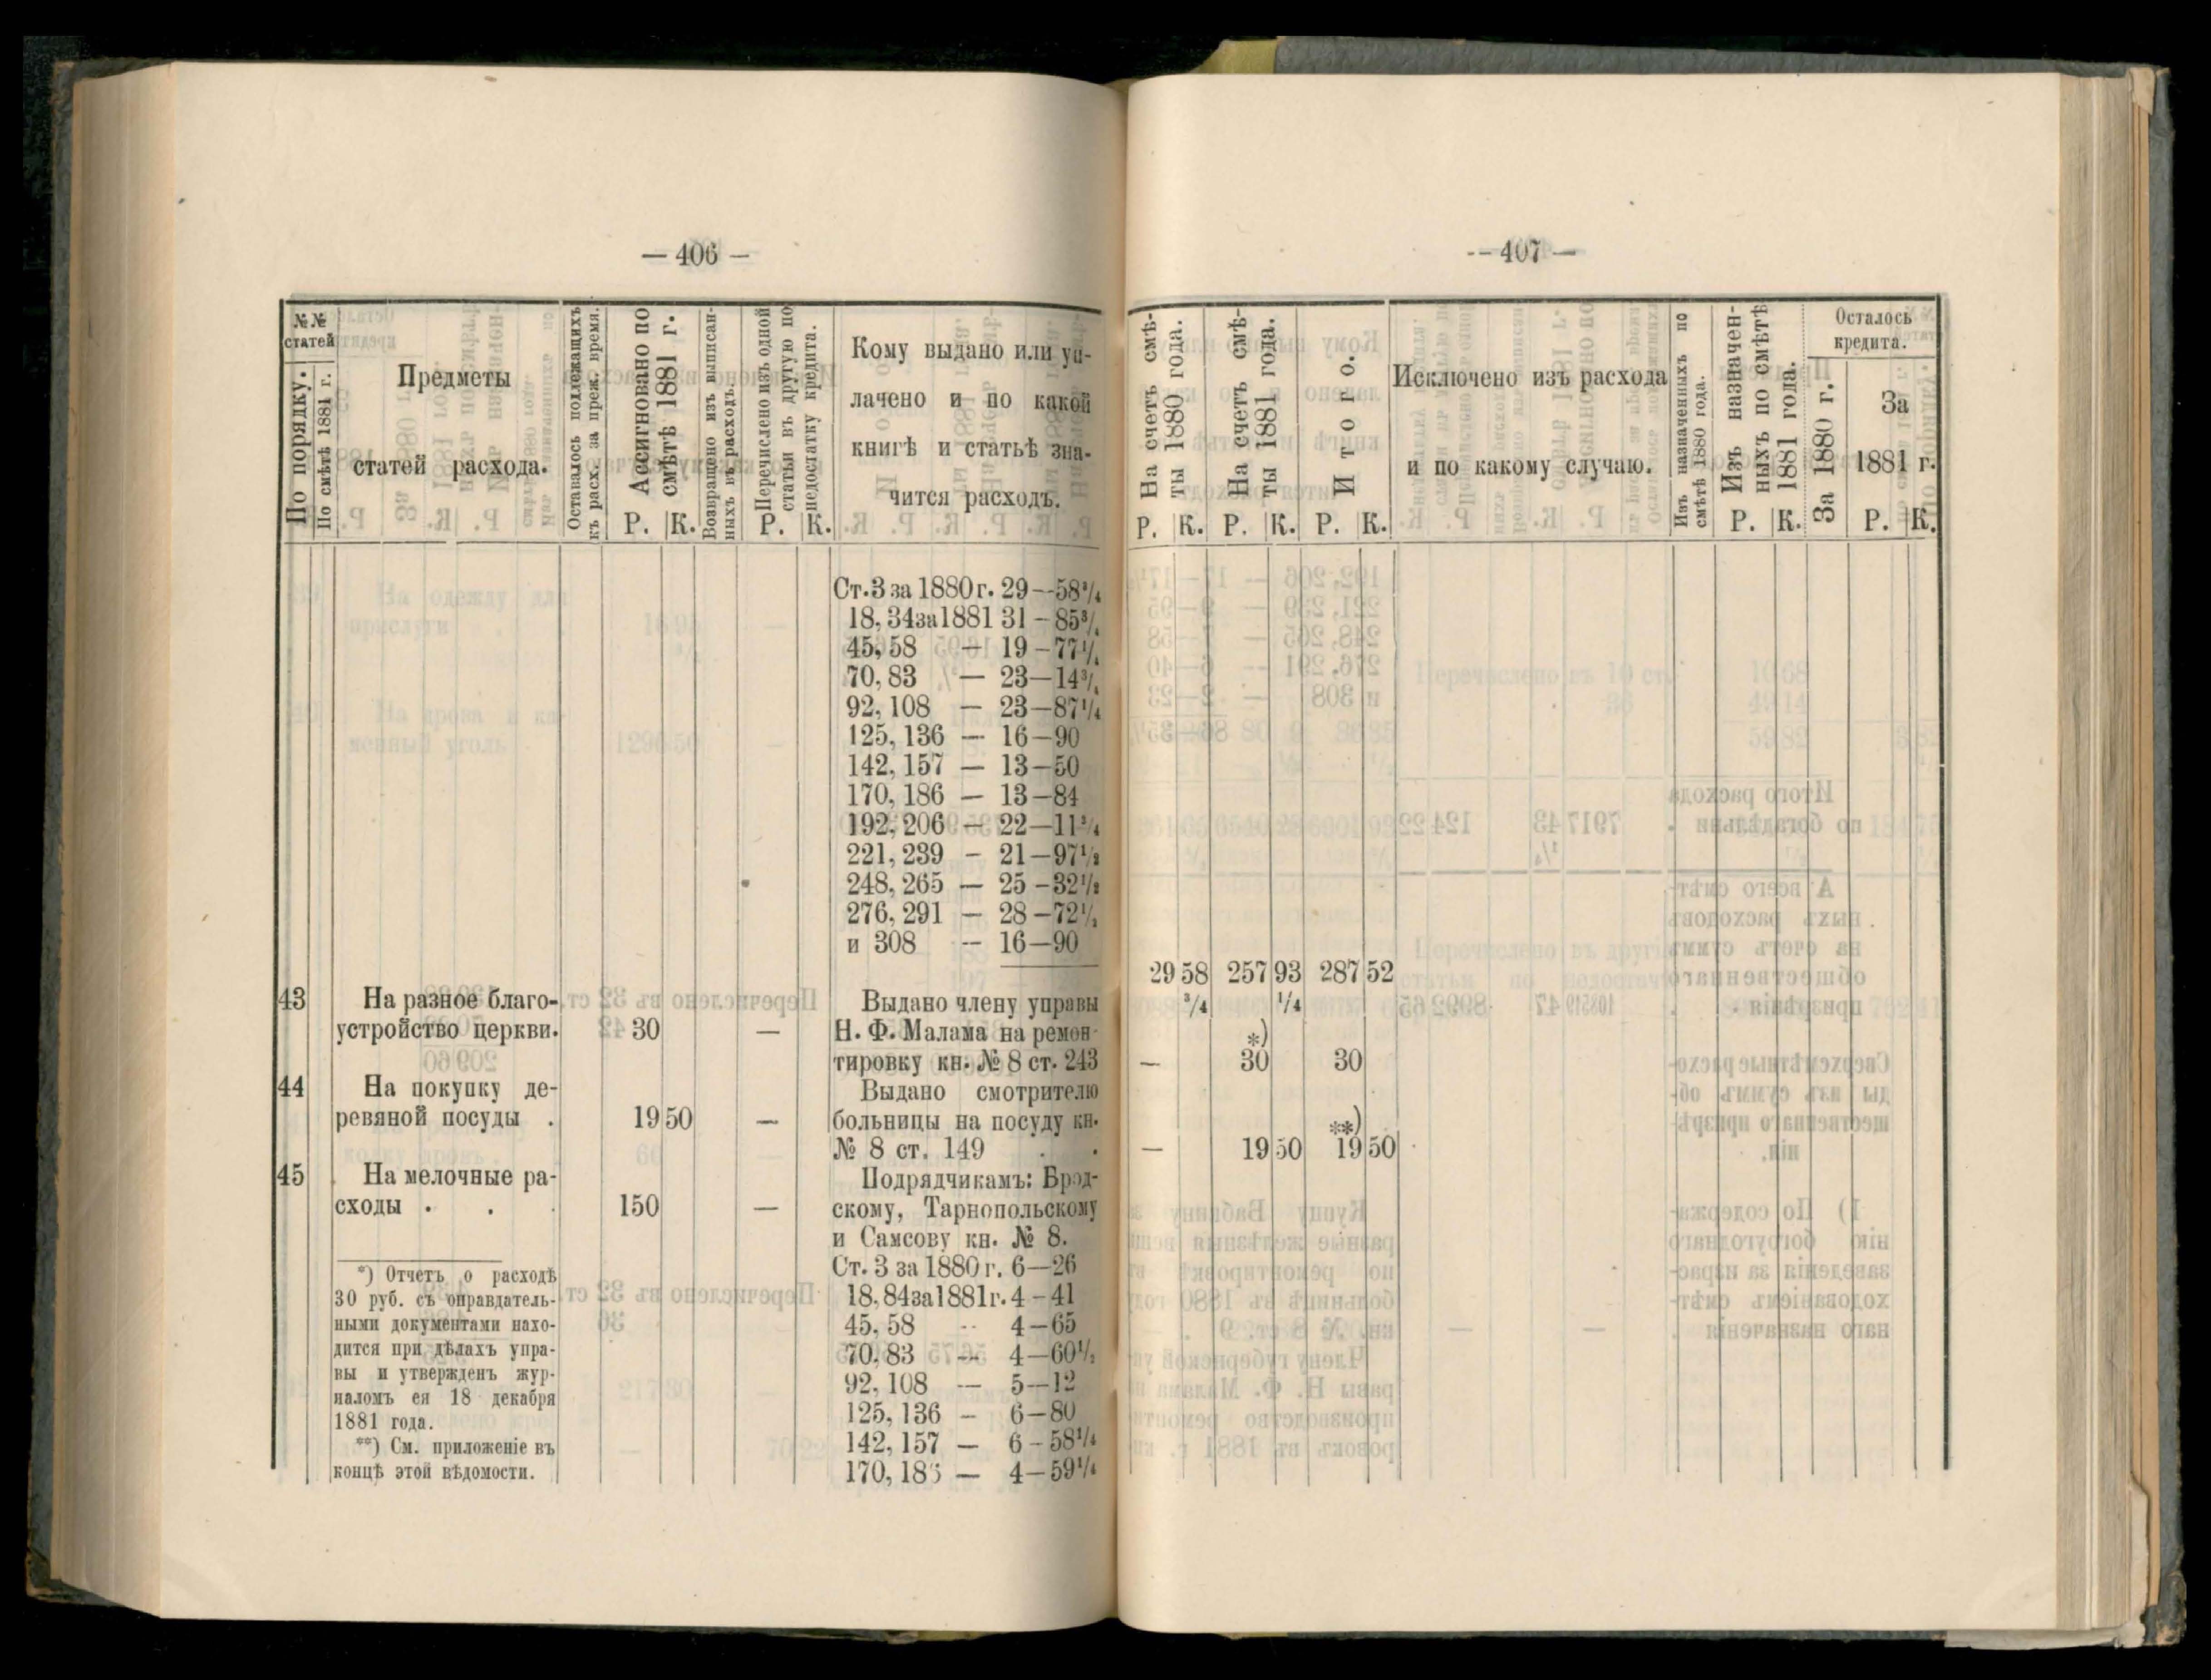 — 406 —
№№ статей
По порядку.
По смѣтѣ 1881 г.
Предметы
статей расхода.
Оставалось подлежащихъ
къ расх. за преж. время.
Ассигновано по
смѣтѣ 1881 г.
Р. К.
Возвращено изъ выписан-
ныхъ въ расходъ.
Перечислено изъ одной
статьи въ другую по
недостатку кредита.
Р. К.
Кому выдано или уп-
лачено и по какой
книгѣ и статьѣ зна-
чится расходъ.
Ст. 3 за 1880 г. 29—58³/₄
18, 34 за 1881 31—85³/₄
45, 58 — 19—77¹/₄
70, 83 — 23—14³/₄
92, 108 — 23—87¹/₄
125, 136 — 16—90
142, 157 — 13—50
170, 186 — 13—84
192, 206 — 22—11³/₄
221, 239 — 21—97¹/₂
248, 265 — 25—32¹/₂
276, 291 — 28—72¹/₂
и 308 — 16—90
43 На разное благо-
устройство церкви. 30 —
Выдано члену управы
Н. Ф. Малама на ремон-
тировку кн. № 8 ст. 243
44 На покупку де-
ревяной посуды . 19 50 —
Выдано смотрителю
больницы на посуду кн.
№ 8 ст. 149 . .
45 На мелочные ра-
сходы . . . 150 —
Подрядчикамъ: Брод-
скому, Тарнопольскому
и Самсову кн. № 8.
Ст. 3 за 1880 г. 6—26
18, 84 за 1881 г. 4—41
45, 58 — 4—65
70, 83 — 4—60¹/₂
92, 108 — 5—12
125, 136 — 6—80
142, 157 — 6—58¹/₄
170, 186 — 4—59¹/₄
*) Отчетъ о расходѣ
30 руб. съ оправдатель-
ными документами нахо-
дится при дѣлахъ упра-
вы и утвержденъ жур-
наломъ ея 18 декабря
1881 года.
**) См. приложеніе въ
концѣ этой вѣдомости.
— 407 —
На счетъ смѣ-
ты 1880 года.
Р. К.
На счетъ смѣ-
ты 1881 года.
Р. К.
Итого.
Р. К.
Исключено изъ расхода
и по какому случаю.
Изъ назначенныхъ по
смѣтѣ 1880 года.
Изъ назначен-
ныхъ по смѣтѣ
1881 года.
Р. К.
Осталось
кредита.
За 1880 г.
За
1881 г.
Р. К.
29 58 257 93 287 52
³/₄ ¹/₄
*)
— 30 30
**)
— 19 50 19 50